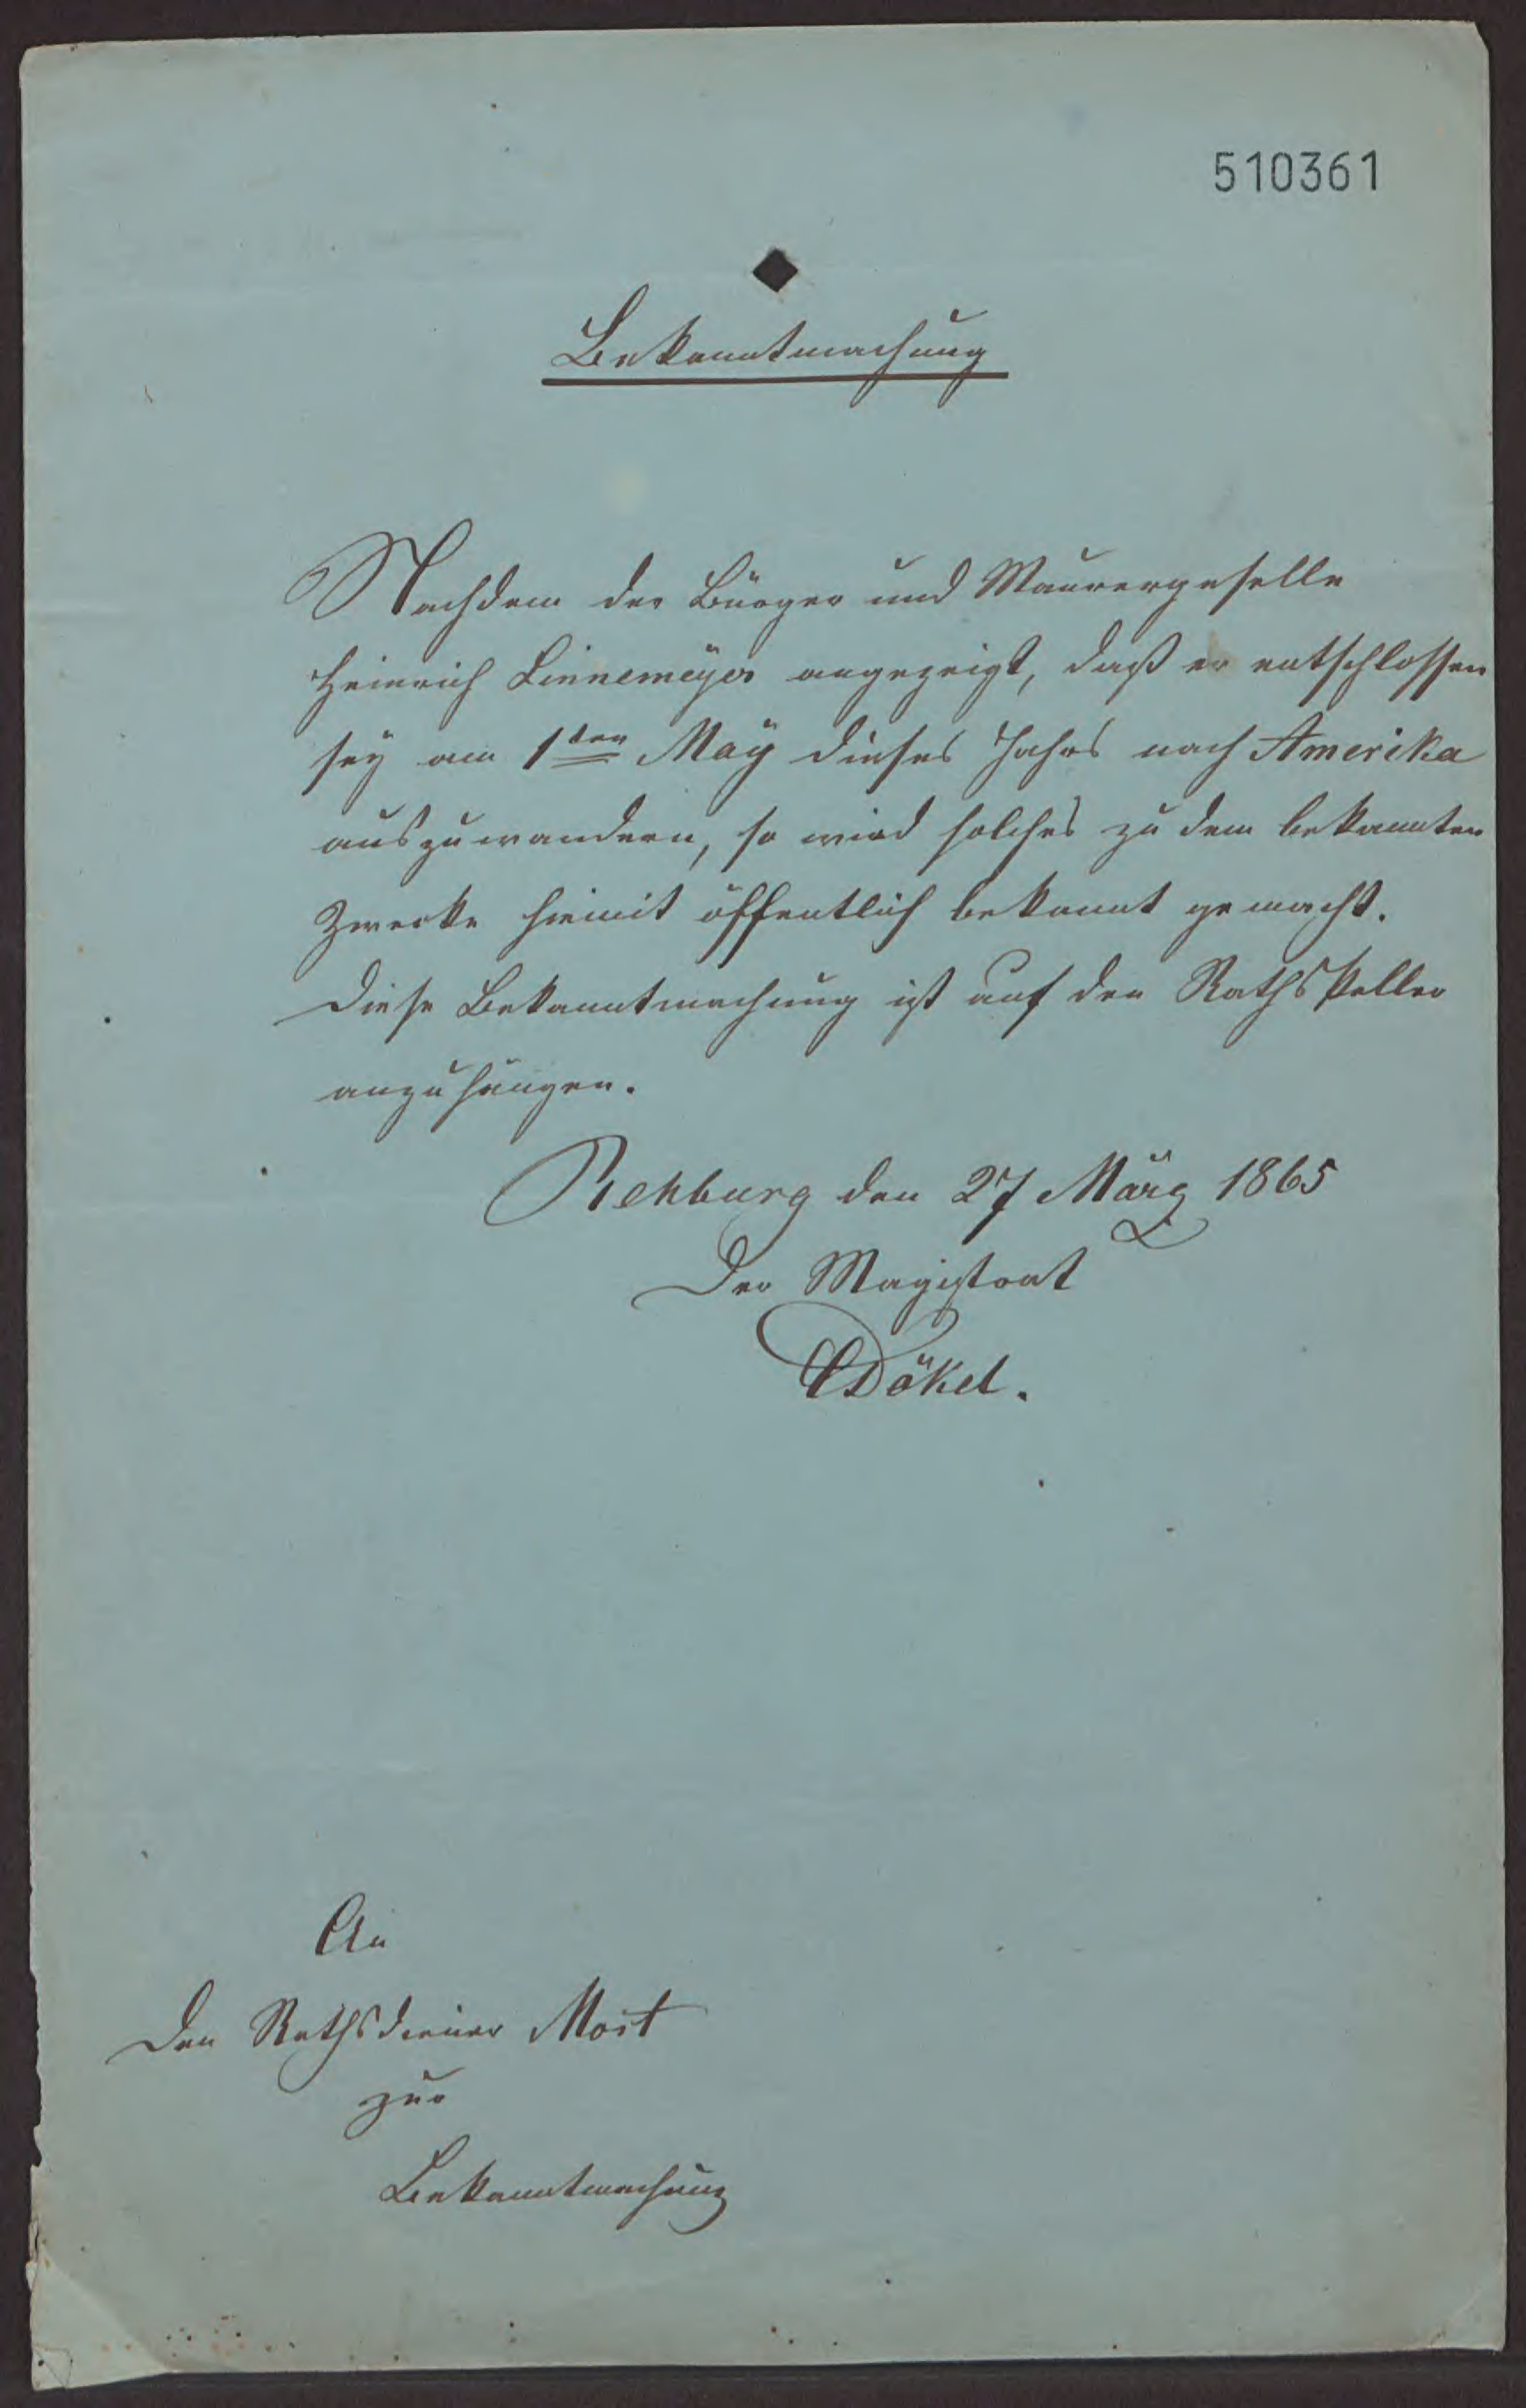 510361
Bekanntmachung
Nachdem der Bürger und Maurergeselle
Heinrich Linnemeÿer angezeigt, daß er entschlossen
seÿ am 1ten Maÿ dieses Jahrs nach Amerika
auszuwandern, so wird solches zu dem bekannten
Zwecke hiemit öffentlich bekannt gemacht.
Diese Bekanntmachung ist auf den Rathskeller
anzuhängen.
Rehburg den 27 März 1865
Der Magistrat
Dökel.
An
den Rathsdiener Most
zur
Bekanntmachung